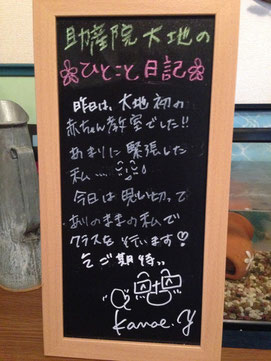 助産院 大地の
ひとこと日記
昨日は、大地初の
赤ちゃん教室でした!!
あまりに緊張した
私…
今日は思い切って
ありのままの私で
クラスを行います♡
乞ご期待。。
Kanae.y